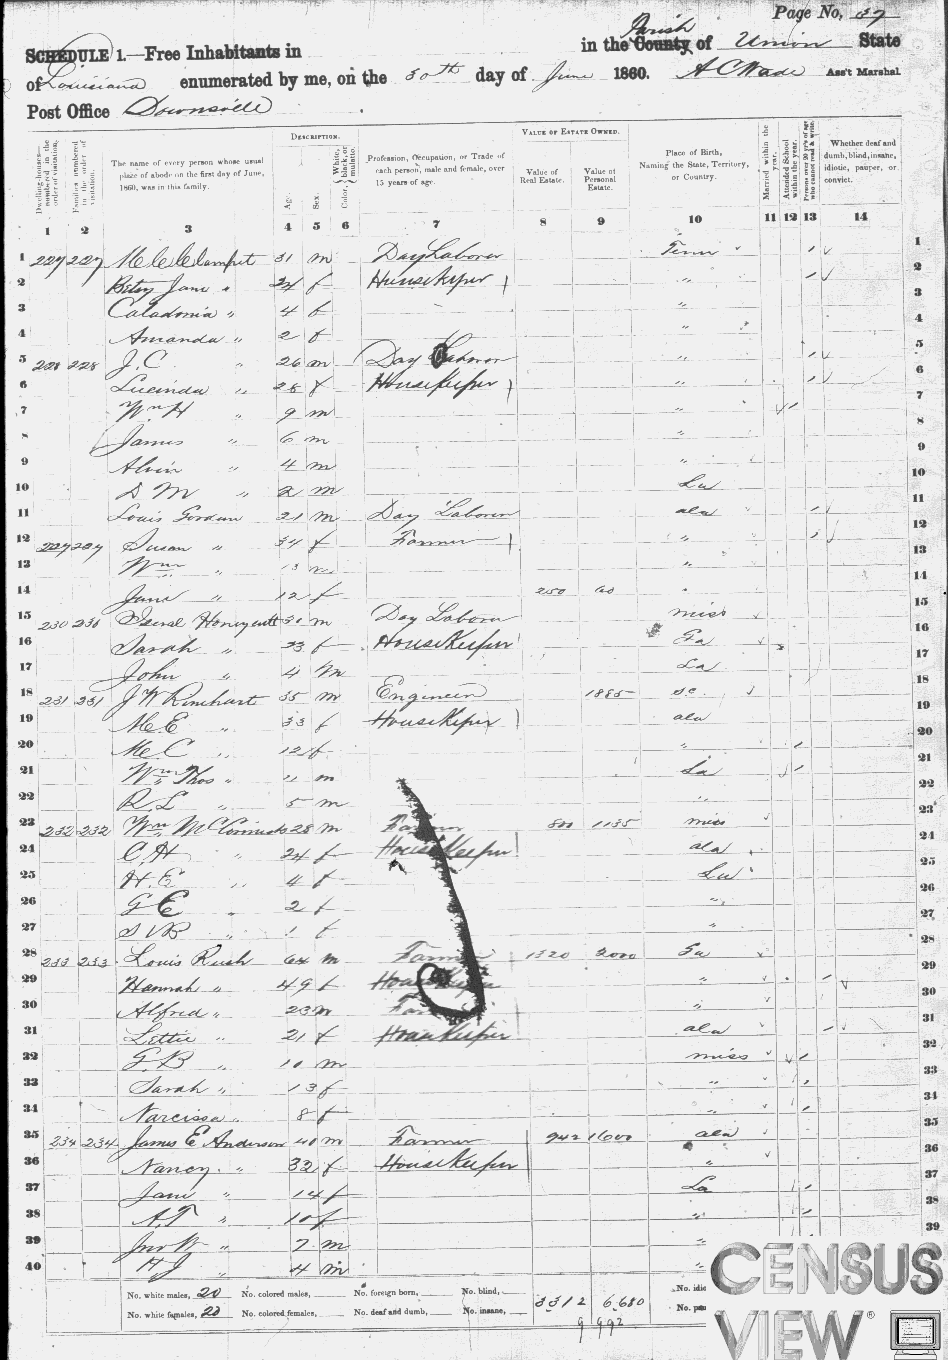 Page No. 37
SCHEDULE 1.—Free Inhabitants in in the County Parish of Union State
of Louisiana enumerated by me, on the 30th day of June 1860. A C Wade Ass't Marshal
Post Office Downsville
Dwelling-houses—numbered in the order of visitation.
Families numbered in the order of visitation.
The name of every person whose usual place of abode on the first day of June, 1860, was in this family.
DESCRIPTION.
Age.
Sex
Color, White, black, or mulatto.
Profession, Occupation, or Trade of each person, male and female, over 15 years of age.
VALUE OF ESTATE OWNED.
Value of Real Estate.
Value of Personal Estate.
Place of Birth, Naming the State, Territory, or Country.
Married within the year.
Attended School within the year.
Persons over 20 y'rs of age who cannot read & write.
Whether deaf and dumb, blind, insane, idiotic, pauper, or convict.
1 2 3 4 5 6 7 8 9 10 11 12 13 14
1 227 227 31 m Day Laborer Tenn / 1
2 Betsy Jane " 24 f Housekeper " / 2
3 Caladonia " 4 f " 3
4 Amanda " 2 f " 4
5 228 228 J. C. " 26 m Day Laborer " / 5
6 Lucinda " 28 f Housekeeper " / 6
7 Wm H " 9 m " / 7
8 James " 6 m " 8
9 Alvin " 4 m " 9
10 D M " 2 m La 10
11 Louis Gordun 21 m Day Laborer ala / 11
12 Susan " 34 f Farmer " / 12
13 Wm " 13 m " 13
14 Jane " 12 f 250 60 " 14
15 230 230 Honeycutt m Day Laborer miss 15
16 Sarah " 23 f Housekeeper Ga 16
17 John " 4 m La 17
18 231 231 J W Rinehart 35 m Engineer 1885 sc 18
19 M. E " 33 f Housekeper ala 19
20 M. C " 12 f " / 20
21 Wm Thos " 11 m La / 21
22 R L " 5 m " 22
23 232 232 Wm McCormick 28 m Farmer 800 1135 miss 23
24 C. H " 24 f Housekeeper ala 24
25 H. E " 4 f La 25
26 G E " 2 f " 26
27 " 1 f " 27
28 233 233 Louis Rush 64 m Farmer 1320 2000 28
29 Hannah " 49 f Housekeeper " / 29
30 Alfred " 23 m " 30
31 Lettie " 21 f Housekeeper ala / 31
32 G. B " 10 m miss / 32
33 Sarah " 13 f " / 33
34 Narcissa " 8 f " / 34
35 234 234 James E Anderson 40 m Farmer 942 1600 ala 35
36 Nancy " 32 f Housekeeper " 36
37 Jane " 14 f La / 37
38 A. T " 10 f " / 38
39 Jno W " 7 m " 39
40 H J " 4 m "
No. white males, 20 No. colored males, No. foreign born, No. blind, No. idio
No. white females, 20 No. colored females, No. deaf and dumb, No. insane, 3312 6,680
9 992
CENSUS VIEW ®